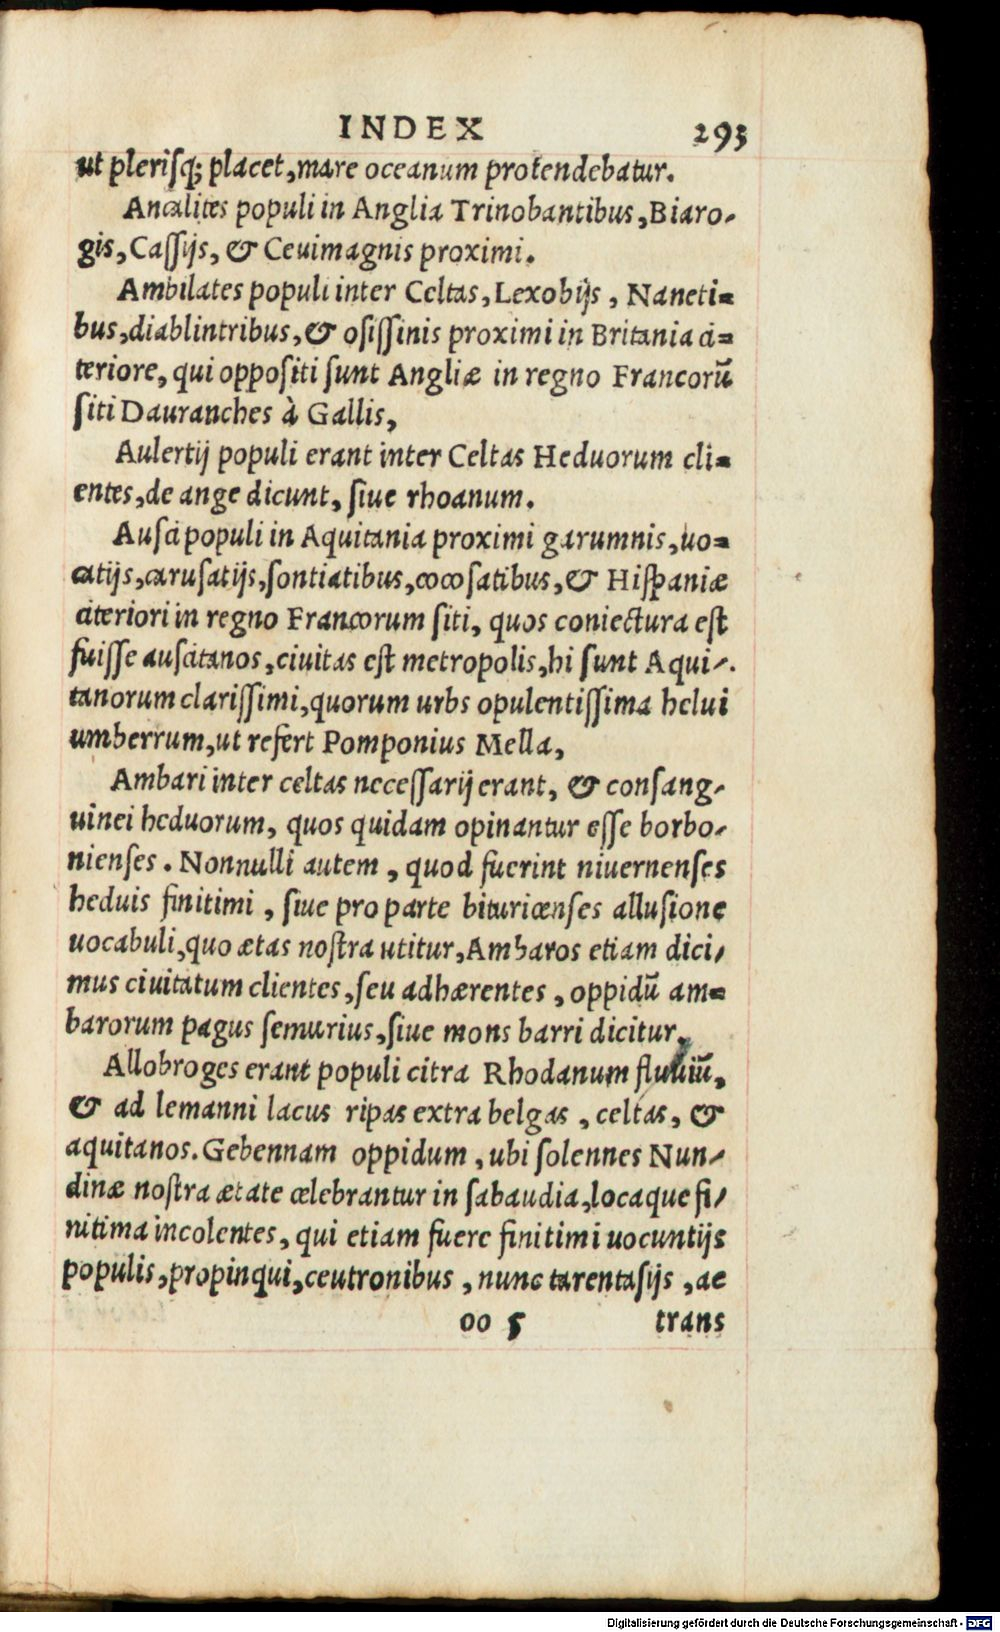 INDEX 293
ut plerisq; placet, mare oceanum protendebatur.
Ancalites populi in Anglia Trinobantibus, Biaro-
gis, Caſſijs, & Ceuimagnis proximi.
Ambilates populi inter Celtas, Lexobijs, Naneti-
bus, diablintribus, & oſiſſinis proximi in Britania ci-
teriore, qui oppoſiti ſunt Angliæ in regno Francorū
ſiti Dauranches à Gallis,
Aulertij populi erant inter Celtas Heduorum cli-
entes, de ange dicunt, ſiue rhoanum.
Auſci populi in Aquitania proximi garumnis, uo-
catijs, caruſatijs, ſontiatibus, cocoſatibus, & Hiſpaniæ
citeriori in regno Francorum ſiti, quos coniectura eſt
fuiſſe auſcitanos, ciuitas eſt metropolis, hi ſunt Aqui-.
tanorum clariſſimi, quorum urbs opulentiſſima helui
umberrum, ut refert Pomponius Mella,
Ambari inter celtas neceſſarij erant, & conſang-
uinei heduorum, quos quidam opinantur eſſe borbo-
nienſes. Nonnulli autem, quod fuerint niuernenſes
heduis finitimi, ſiue pro parte bituricenſes alluſione
uocabuli, quo ætas noſtra utitur, Ambaros etiam dici-
mus ciuitatum clientes, ſeu adhærentes, oppidū am-
barorum pagus ſemurius, ſiue mons barri dicitur.
Allobroges erant populi citra Rhodanum fluuiū,
& ad lemanni lacus ripas extra belgas, celtas, &
aquitanos. Gebennam oppidum, ubi ſolennes Nun-
dinæ noſtra ætate celebrantur in ſabaudia, locaque fi-
nitima incolentes, qui etiam fuere finitimi uocuntijs
populis, propinqui, ceutronibus, nunc tarentaſijs, ac
oo 5 trans
Digitalisierung gefördert durch die Deutsche Forschungsgemeinschaft - DFG